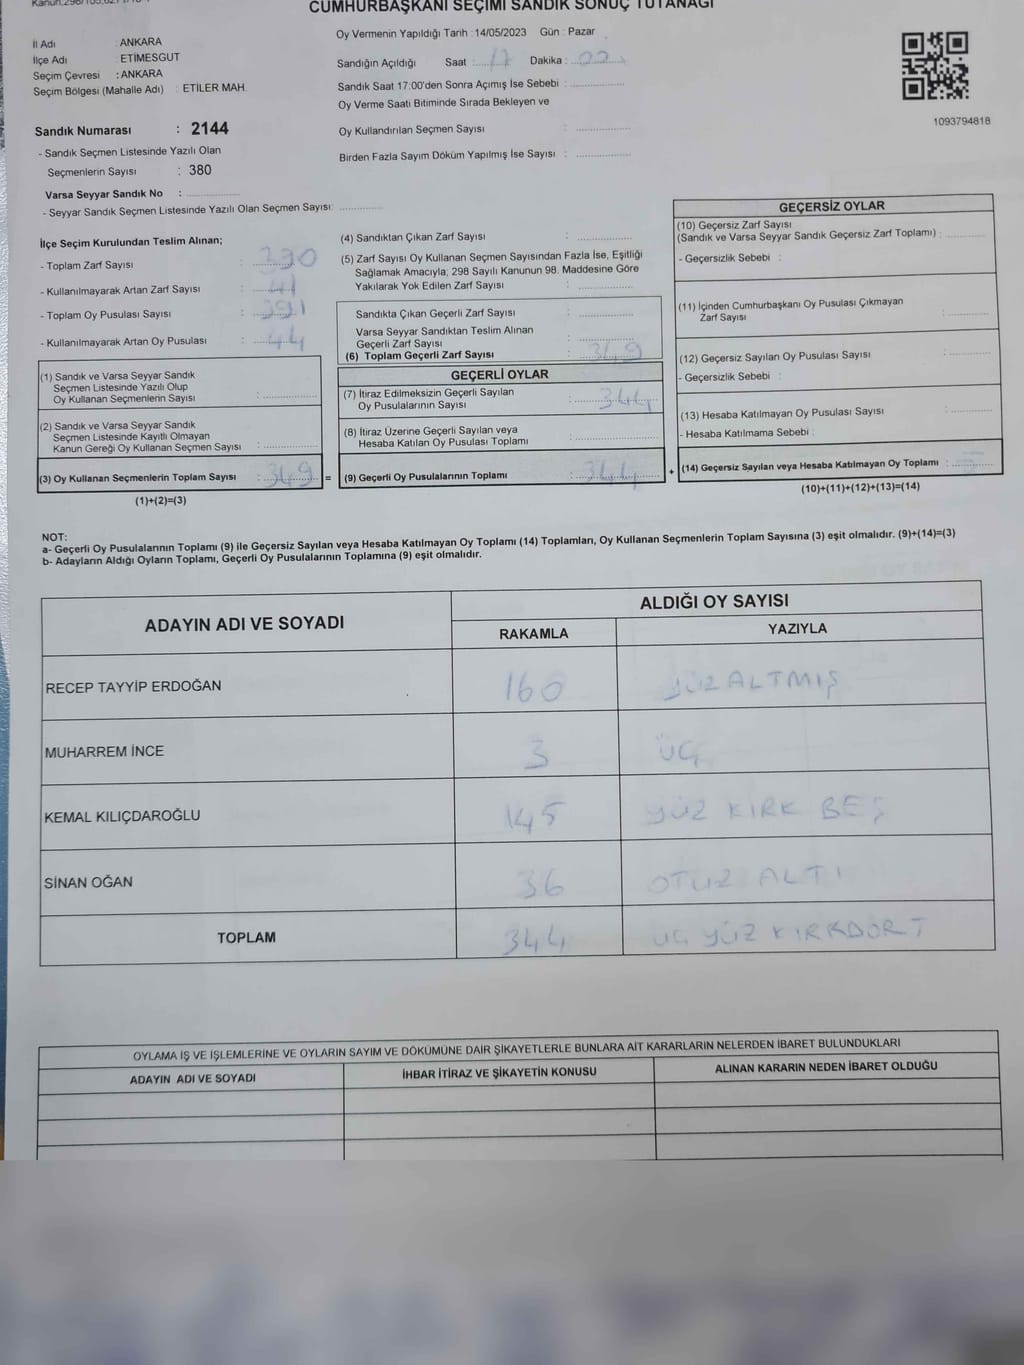 CUMHURBAŞKANI SEÇİMİ SANDIK SONUÇ TUTANAĞI
İl Adı : ANKARA
İlçe Adı : ETİMESGUT
Seçim Çevresi : ANKARA
Seçim Bölgesi (Mahalle Adı) : ETİLER MAH.
Sandık Numarası : 2144
- Sandık Seçmen Listesinde Yazılı Olan
Seçmenlerin Sayısı : 380
Varsa Seyyar Sandık No :
- Seyyar Sandık Seçmen Listesinde Yazılı Olan Seçmen Sayısı:
Oy Vermenin Yapıldığı Tarih : 14/05/2023 Gün : Pazar
Sandığın Açıldığı Saat : 17 Dakika : 00
Sandık Saat 17:00'den Sonra Açımış İse Sebebi :
Oy Verme Saati Bitiminde Sırada Bekleyen ve
Oy Kullandırılan Seçmen Sayısı :
Birden Fazla Sayım Döküm Yapılmış İse Sayısı :
1093794818
İlçe Seçim Kurulundan Teslim Alınan;
- Toplam Zarf Sayısı : 390
- Kullanılmayarak Artan Zarf Sayısı : 41
- Toplam Oy Pusulası Sayısı : 391
- Kullanılmayarak Artan Oy Pusulası : 44
(1) Sandık ve Varsa Seyyar Sandık
Seçmen Listesinde Yazılı Olup
Oy Kullanan Seçmenlerin Sayısı :
(2) Sandık ve Varsa Seyyar Sandık
Seçmen Listesinde Kayıtlı Olmayan
Kanun Gereği Oy Kullanan Seçmen Sayısı :
(3) Oy Kullanan Seçmenlerin Toplam Sayısı : 349 =
(1)+(2)=(3)
(4) Sandıktan Çıkan Zarf Sayısı :
(5) Zarf Sayısı Oy Kullanan Seçmen Sayısından Fazla İse, Eşitliği
Sağlamak Amacıyla; 298 Sayılı Kanunun 98. Maddesine Göre
Yakılarak Yok Edilen Zarf Sayısı :
Sandıkta Çıkan Geçerli Zarf Sayısı :
Varsa Seyyar Sandıktan Teslim Alınan
Geçerli Zarf Sayısı :
(6) Toplam Geçerli Zarf Sayısı : 349
GEÇERLİ OYLAR
(7) İtiraz Edilmeksizin Geçerli Sayılan
Oy Pusulalarının Sayısı : 344
(8) İtiraz Üzerine Geçerli Sayılan veya
Hesaba Katılan Oy Pusulası Toplamı :
(9) Geçerli Oy Pusulalarının Toplamı : 344 +
GEÇERSİZ OYLAR
(10) Geçersiz Zarf Sayısı
(Sandık ve Varsa Seyyar Sandık Geçersiz Zarf Toplamı) :
- Geçersizlik Sebebi :
(11) İçinden Cumhurbaşkanı Oy Pusulası Çıkmayan
Zarf Sayısı :
(12) Geçersiz Sayılan Oy Pusulası Sayısı :
- Geçersizlik Sebebi :
(13) Hesaba Katılmayan Oy Pusulası Sayısı :
- Hesaba Katılmama Sebebi :
(14) Geçersiz Sayılan veya Hesaba Katılmayan Oy Toplamı : 5
(10)+(11)+(12)+(13)=(14)
NOT:
a- Geçerli Oy Pusulalarının Toplamı (9) ile Geçersiz Sayılan veya Hesaba Katılmayan Oy Toplamı (14) Toplamları, Oy Kullanan Seçmenlerin Toplam Sayısına (3) eşit olmalıdır. (9)+(14)=(3)
b- Adayların Aldığı Oyların Toplamı, Geçerli Oy Pusulalarının Toplamına (9) eşit olmalıdır.
ADAYIN ADI VE SOYADI
ALDIĞI OY SAYISI
RAKAMLA YAZIYLA
RECEP TAYYİP ERDOĞAN 160 YÜZ ALTMIŞ
MUHARREM İNCE 3 ÜÇ
KEMAL KILIÇDAROĞLU 145 YÜZ KIRK BEŞ
SİNAN OĞAN 36 OTUZ ALTI
TOPLAM 344 ÜÇ YÜZ KIRKDÖRT
OYLAMA İŞ VE İŞLEMLERİNE VE OYLARIN SAYIM VE DÖKÜMÜNE DAİR ŞİKAYETLERLE BUNLARA AİT KARARLARIN NELERDEN İBARET BULUNDUKLARI
ADAYIN ADI VE SOYADI İHBAR İTİRAZ VE ŞİKAYETİN KONUSU ALINAN KARARIN NEDEN İBARET OLDUĞU